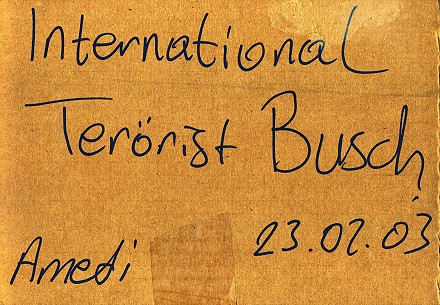 International
Terörist Busch
Amedi 23.02.03